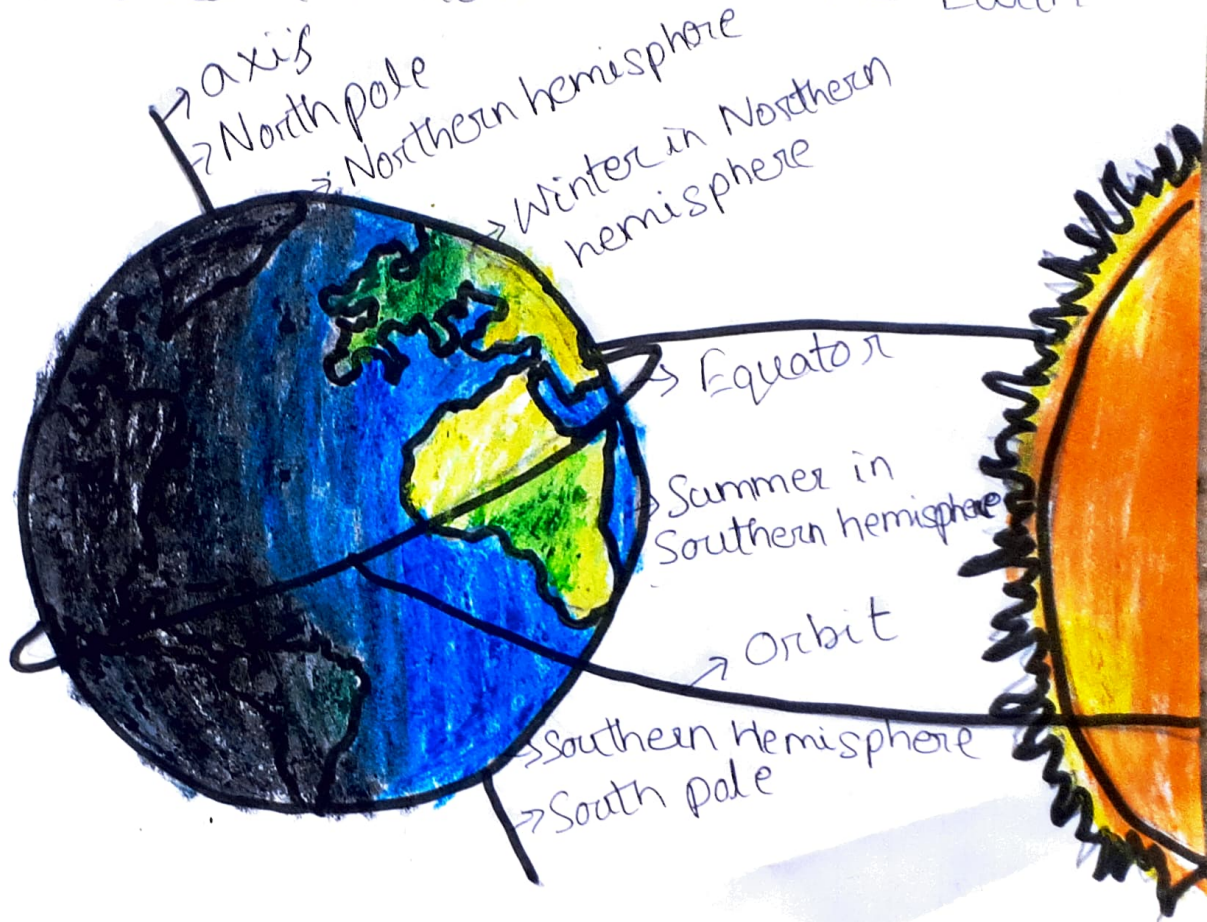 axis
North pole
Northern hemisphere
Winter in Northern
hemisphere
Equator
Summer in
Southern hemisphere
Orbit
Southern Hemisphere
South pole